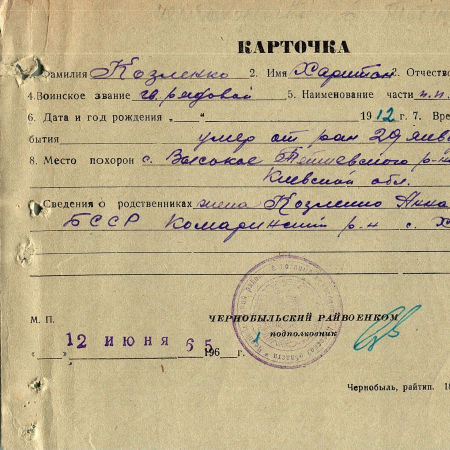 КАРТОЧКА
1. Фамилия Козленко 2. Имя Харитон 3. Отчество
4. Воинское звание гв. рядовой 5. Наименование части п.п.
6. Дата и год рождения „ “ 1912 г. 7. Вре
бытия умер от ран 29 янва
8. Место похорон с. Высокое Тетиевского р-н
Киевской обл.
Сведения о родственниках жена Козленко Анна
БССР Комаринский р-н с. Х
М. П.
ЧЕРНОБЫЛЬСКИЙ РАЙВОЕНКОМ
подполковник
„ “ 12 ИЮНЯ 65 196 г.
Чернобыль, райтип. 1